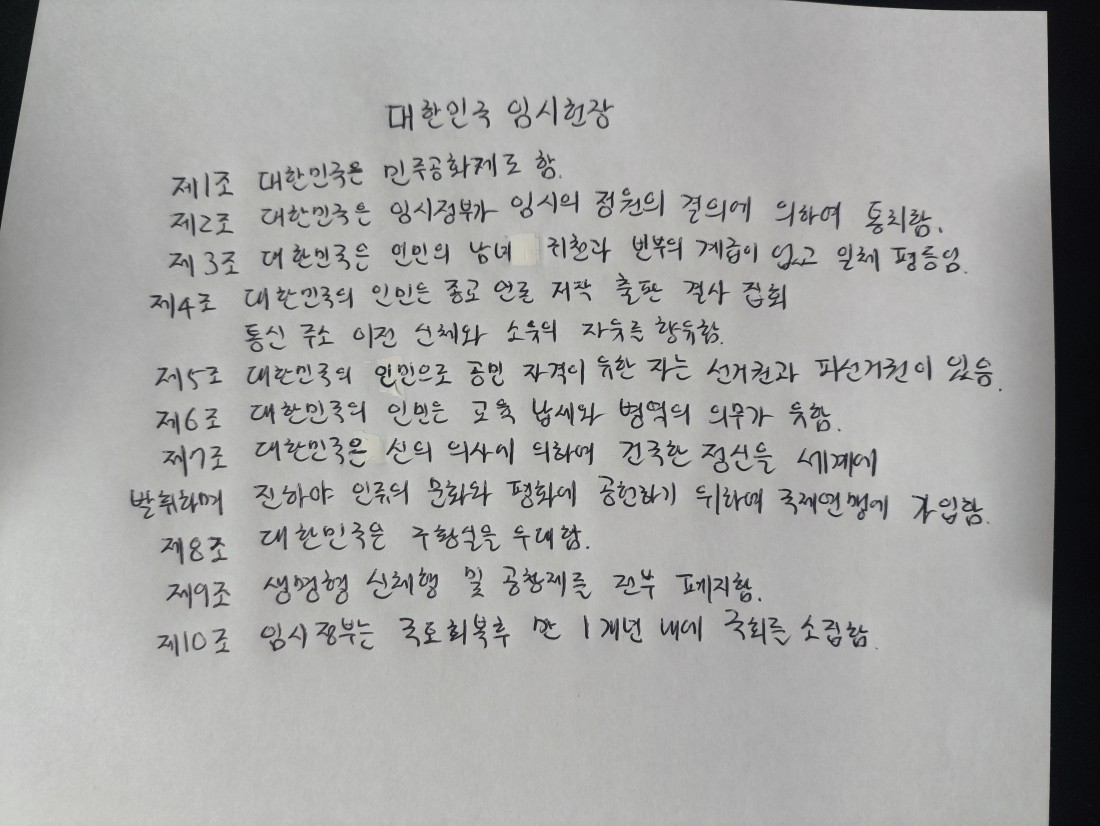 대한민국 임시헌장
제1조 대한민국은 민주공화제로 함.
제2조 대한민국은 임시정부가 임시의 정원의 결의에 의하여 통치함.
제3조 대한민국은 인민의 남녀 귀천과 빈부의 계급이 없고 일체 평등임.
제4조 대한민국의 인민은 종교 언론 저작 출판 결사 집회
통신 주소 이전 신체와 소유의 자유를 향유함.
제5조 대한민국의 인민으로 공민 자격이 유한 자는 선거권과 피선거권이 있음.
제6조 대한민국의 인민은 교육 납세와 병역의 의무가 유함.
제7조 대한민국은 신의 의사에 의하여 건국한 정신을 세계에
발휘하며 진하야 인류의 문화와 평화에 공헌하기 위하여 국제연맹에 가입함.
제8조 대한민국은 구황실을 우대함.
제9조 생명형 신체형 및 공창제를 전부 폐지함.
제10조 임시정부는 국토회복후 만 1개년 내에 국회를 소집함.